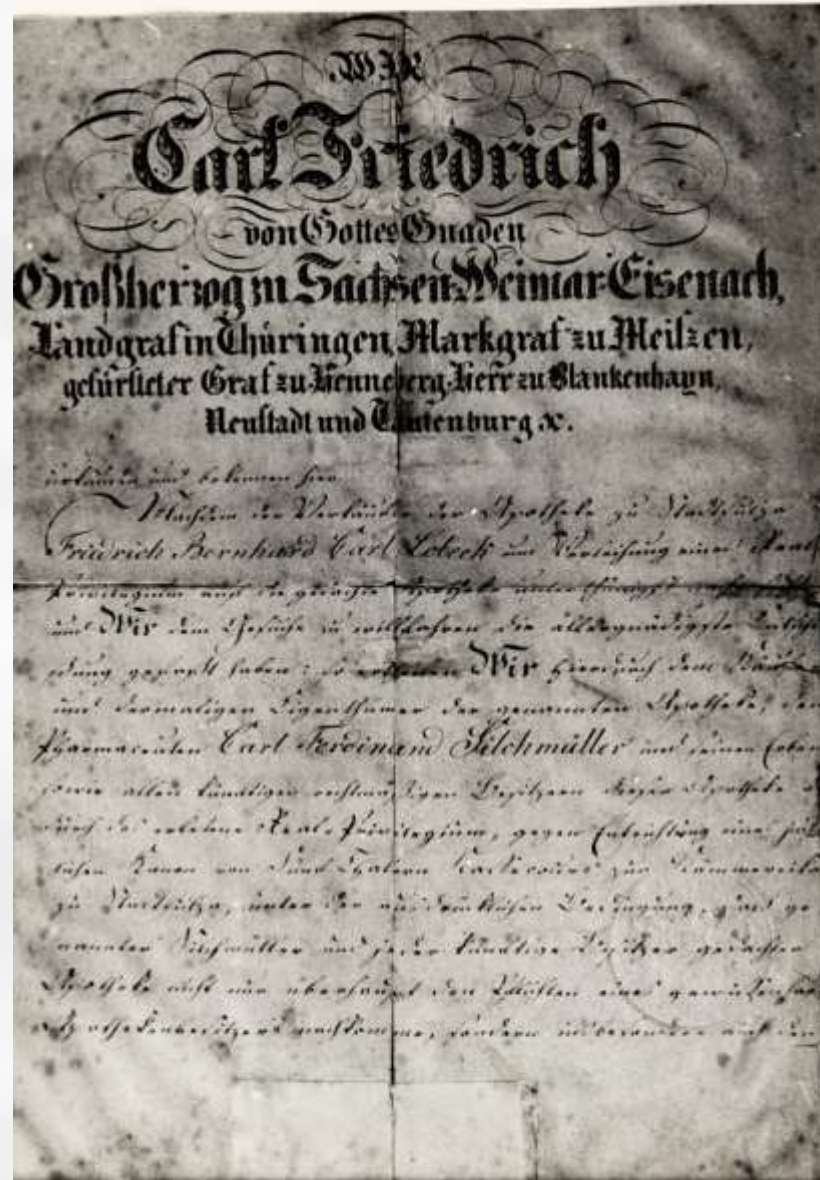 WIR
Carl Friedrich
von Gottes Gnaden
Großherzog zu Sachsen-Weimar-Eisenach,
Landgraf in Thüringen, Markgraf zu Meißen,
gefürsteter Graf zu Henneberg, Herr zu Blankenhayn,
Neustadt und Tautenburg ꝛc.
urkunden und bekennen hier
Nachdem der Verkäufer der Apotheke zu Stadtsulza
Friedrich Bernhard Carl Lobeck um Verleihung eines Real-
Privilegium auf die gedachte Apotheke unterthänigst
und Wir dem Gesuche zu willfahren die allergnädigste Entschei-
dung gefaßt haben: so ertheilen Wir hierdurch dem Käufer
und dermaligen Eigenthümer der genannten Apotheke, den
Pharmaceuten Carl Ferdinand Silchmüller und seinen Erben
sowie allen künftigen rechtmäßigen Besitzern dieser Apotheke
durch das erbetene Real-Privilegium, gegen Entrichtung eines jähr-
lichen Kanon von Fünf Thalern zur Kämmereik
zu Stadtsulza, unter der ausdrücklichen Bedingung, daß ge-
nannter Silchmüller und jeder künftige Besitzer gedachter
Apotheke nicht nur überhaupt den Pflichten eines gewissenhaf
Apothekenbesitzers nachkomme, sondern insbesondere auch den